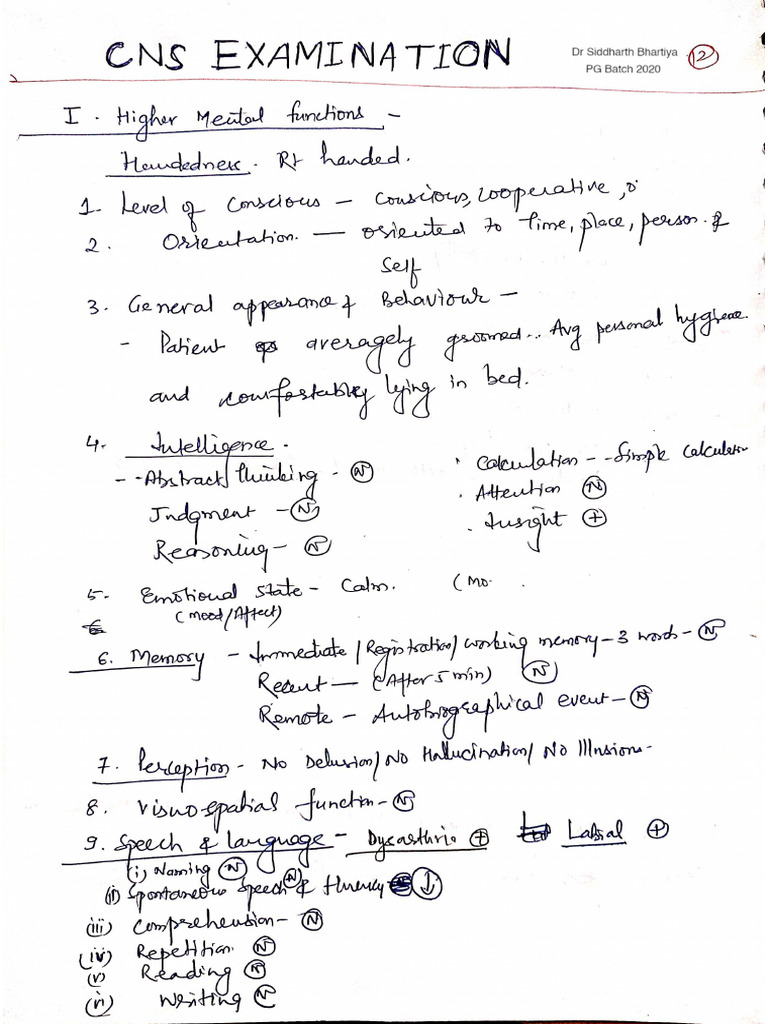 CNS EXAMINATION
Dr Siddharth Bhartiya
PG Batch 2020
12
I. Higher Mental functions -
Handedness. Rt handed.
1. Level of Conscious - Conscious, cooperative,
2. Orientation. — oriented to Time, place, person &
Self
3. General appearance & Behaviour -
- Patient averagely groomed.. Avg personal hygiene.
and comfortably lying in bed.
4. Intelligence.
- - Abstract Thinking - N
Judgment - N
Reasoning - N
. Calculation - - Simple Calculation
. Attention N
. Insight +
5. Emotional State - Calm. (Mo.
(Mood/Affect)
6. Memory - Immediate/Registration/working memory - 3 words - N
Recent — (After 5 min) N
Remote - Autobiographical event - N
7. Perception - No Delusion/No Hallucination/No Illusions -
8. Visuospatial function - N
9. Speech & language - Dysarthria + Labial +
(i) Naming N
(ii) Spontaneous speech N & fluency ↓
(iii) Comprehension - N
(iv) Repetition. N
(v) Reading N
(vi) Writing N